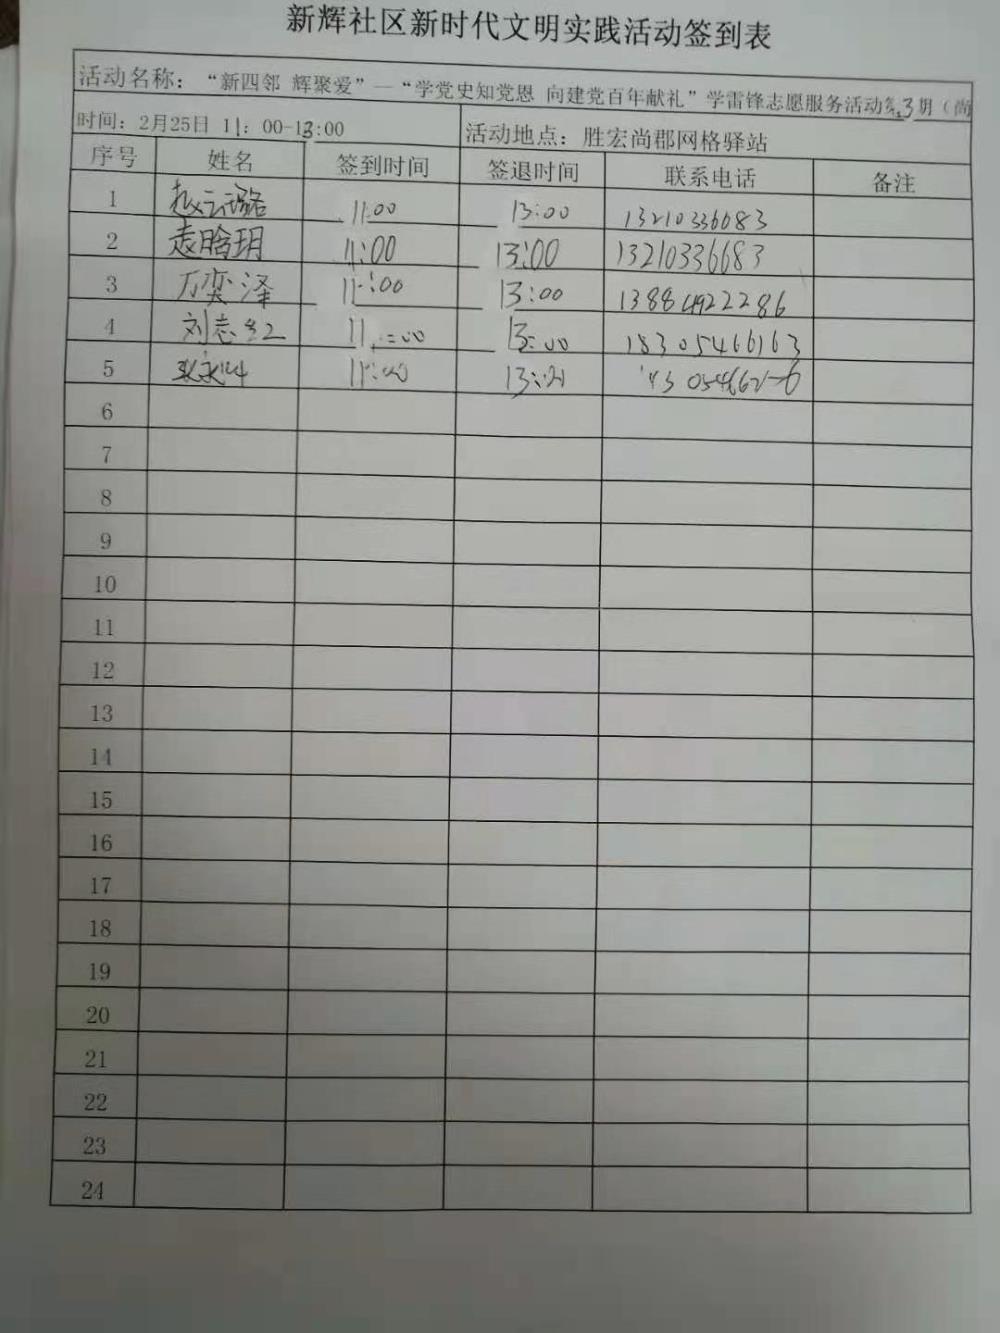 新辉社区新时代文明实践活动签到表
活动名称：“新四邻 辉聚爱”—“学党史知党恩 向建党百年献礼”学雷锋志愿服务活动第3期（尚
时间：2月25日 11：00-13:00 活动地点：胜宏尚郡网格驿站
序号 姓名 签到时间 签退时间 联系电话 备注
1 赵云璐 11:00 13:00 13210336083
2 袁晗玥 11:00 13:00 13210336683
3 万奕泽 11:00 13:00 13884922286
4 刘志红 11:00 13:00 18305466163
5 11:00 13:
6
7
8
9
10
11
12
13
14
15
16
17
18
19
20
21
22
23
24